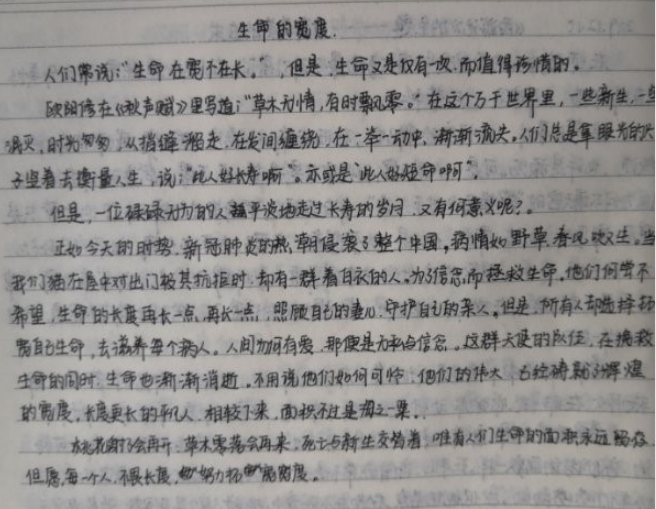 生命的宽度.
人们常说:"生命在宽不在长。",但是,生命又是仅有一次,而值得珍惜的。
欧阳修在《秋声赋》里写道:"草木无情,有时飘零。"在这个万千世界里,一些新生,一些
消灭,时光匆匆,从指缝溜走,在发间缠绕,在一举一动中,渐渐流失。人们总是拿眼光的尺
子竖着去衡量人生,说:"此人好长寿啊"。亦或是"此人好短命啊"。
但是,一位碌碌无为的人平淡地走过长寿的岁月,又有何意义呢?。
正如今天的时势,新冠肺炎的热潮侵袭了整个中国,病情如野草,春风吹又生。当
我们猫在屋中对出门极其抗拒时,却有一群着白衣的人。为了信念而拯救生命。他们何尝不
希望,生命的长度再长一点,再长一点,照顾自己的妻儿,守护自己的亲人。但是,所有人却选择拓
宽自己生命,去滋养每个病人。人间为何有爱,那便是为这点信念。这群天使的队伍,在挽救
生命的同时,生命也渐渐消逝。不用说他们如何可怜,他们的伟大,已经铸就了辉煌
的宽度,长度更长的平凡人,相较下来,面积不过是海之一粟。
桃花谢了会再开,草木零落会再来,死亡与新生交错着,唯有人们生命的面积永远留存
但愿,每一个人,不畏长度,努力拓宽宽度。